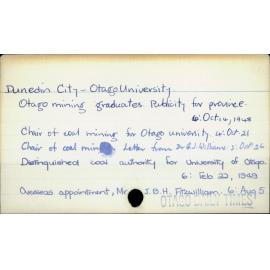 Dunedin City - Otago University
Otago mining graduates. Publicity for province.
6: Oct 14, 1948
Chair of coal mining for Otago university. 6: Oct 21
Chair of coal mining Letter from Dr G.J. Williams 5: Oct 26
Distinguished coal authority for University of Otago.
6: Feb 22, 1949
Overseas appointment, Mr J.B.H. Fitzwilliam 6: Aug 5
OTAGO DAILY TIMES